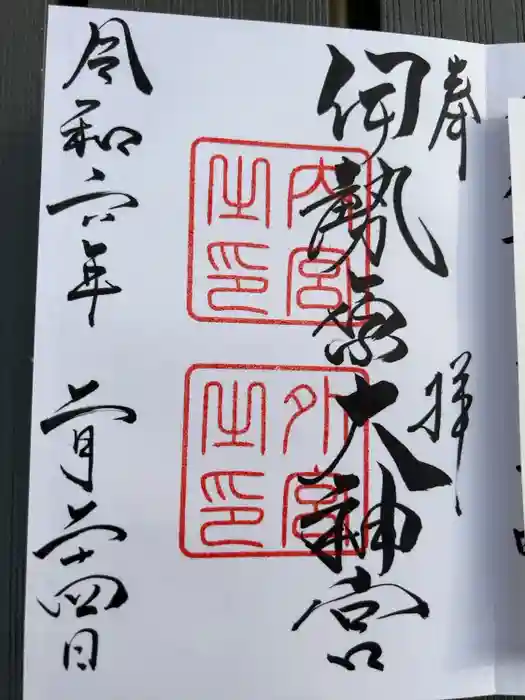 奉拝
伊勢原大神宮
内宮之印
外宮之印
令和六年二月二十四日